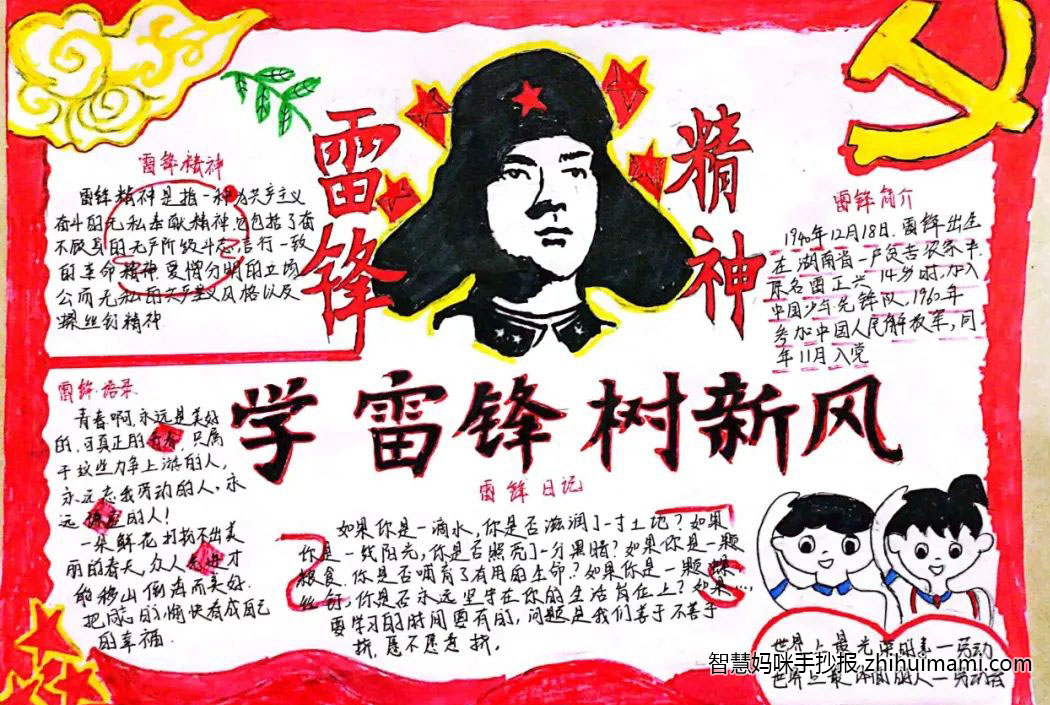 雷锋
精神
雷锋精神
雷锋精神是指一种为共产主义
奋斗的无私奉献精神.它包括了奋
不顾身的无产阶级斗志,言行一致
的革命精神 爱憎分明的立场
公而无私的共产主义风格以及
螺丝钉精神
雷锋简介
1940年12月18日.雷锋出生
在湖南省一户贫苦农家中.
原名雷正兴.14岁时.加入
中国少年先锋队.1960年
参加中国人民解放军,同
年11月入党
学雷锋树新风
雷锋语录
青春啊,永远是美好
的,可真正的青春,只属
于这些力争上游的人,
永远忘我劳动的人,永
远谦虚的人!
一朵鲜花打扮不出美
丽的春天,众人先进才
能移山倒海而美好.
的幸福.
雷锋日记
如果你是一滴水,你是否滋润了一寸土地?如果
你是一线阳光,你是否照亮了一分黑暗?如果你是一颗
粮食.你是否哺育了有用的生命?如果你是一颗螺
丝钉,你是否永远坚守在你的生活岗位上?如果…
要学习的时间固有的,问题是我们善于不善于
挤,愿不愿意挤.
世界上最光荣的素一劳动
世界上最体面的人一劳动者
智慧妈咪手抄报 zhihuimami.com